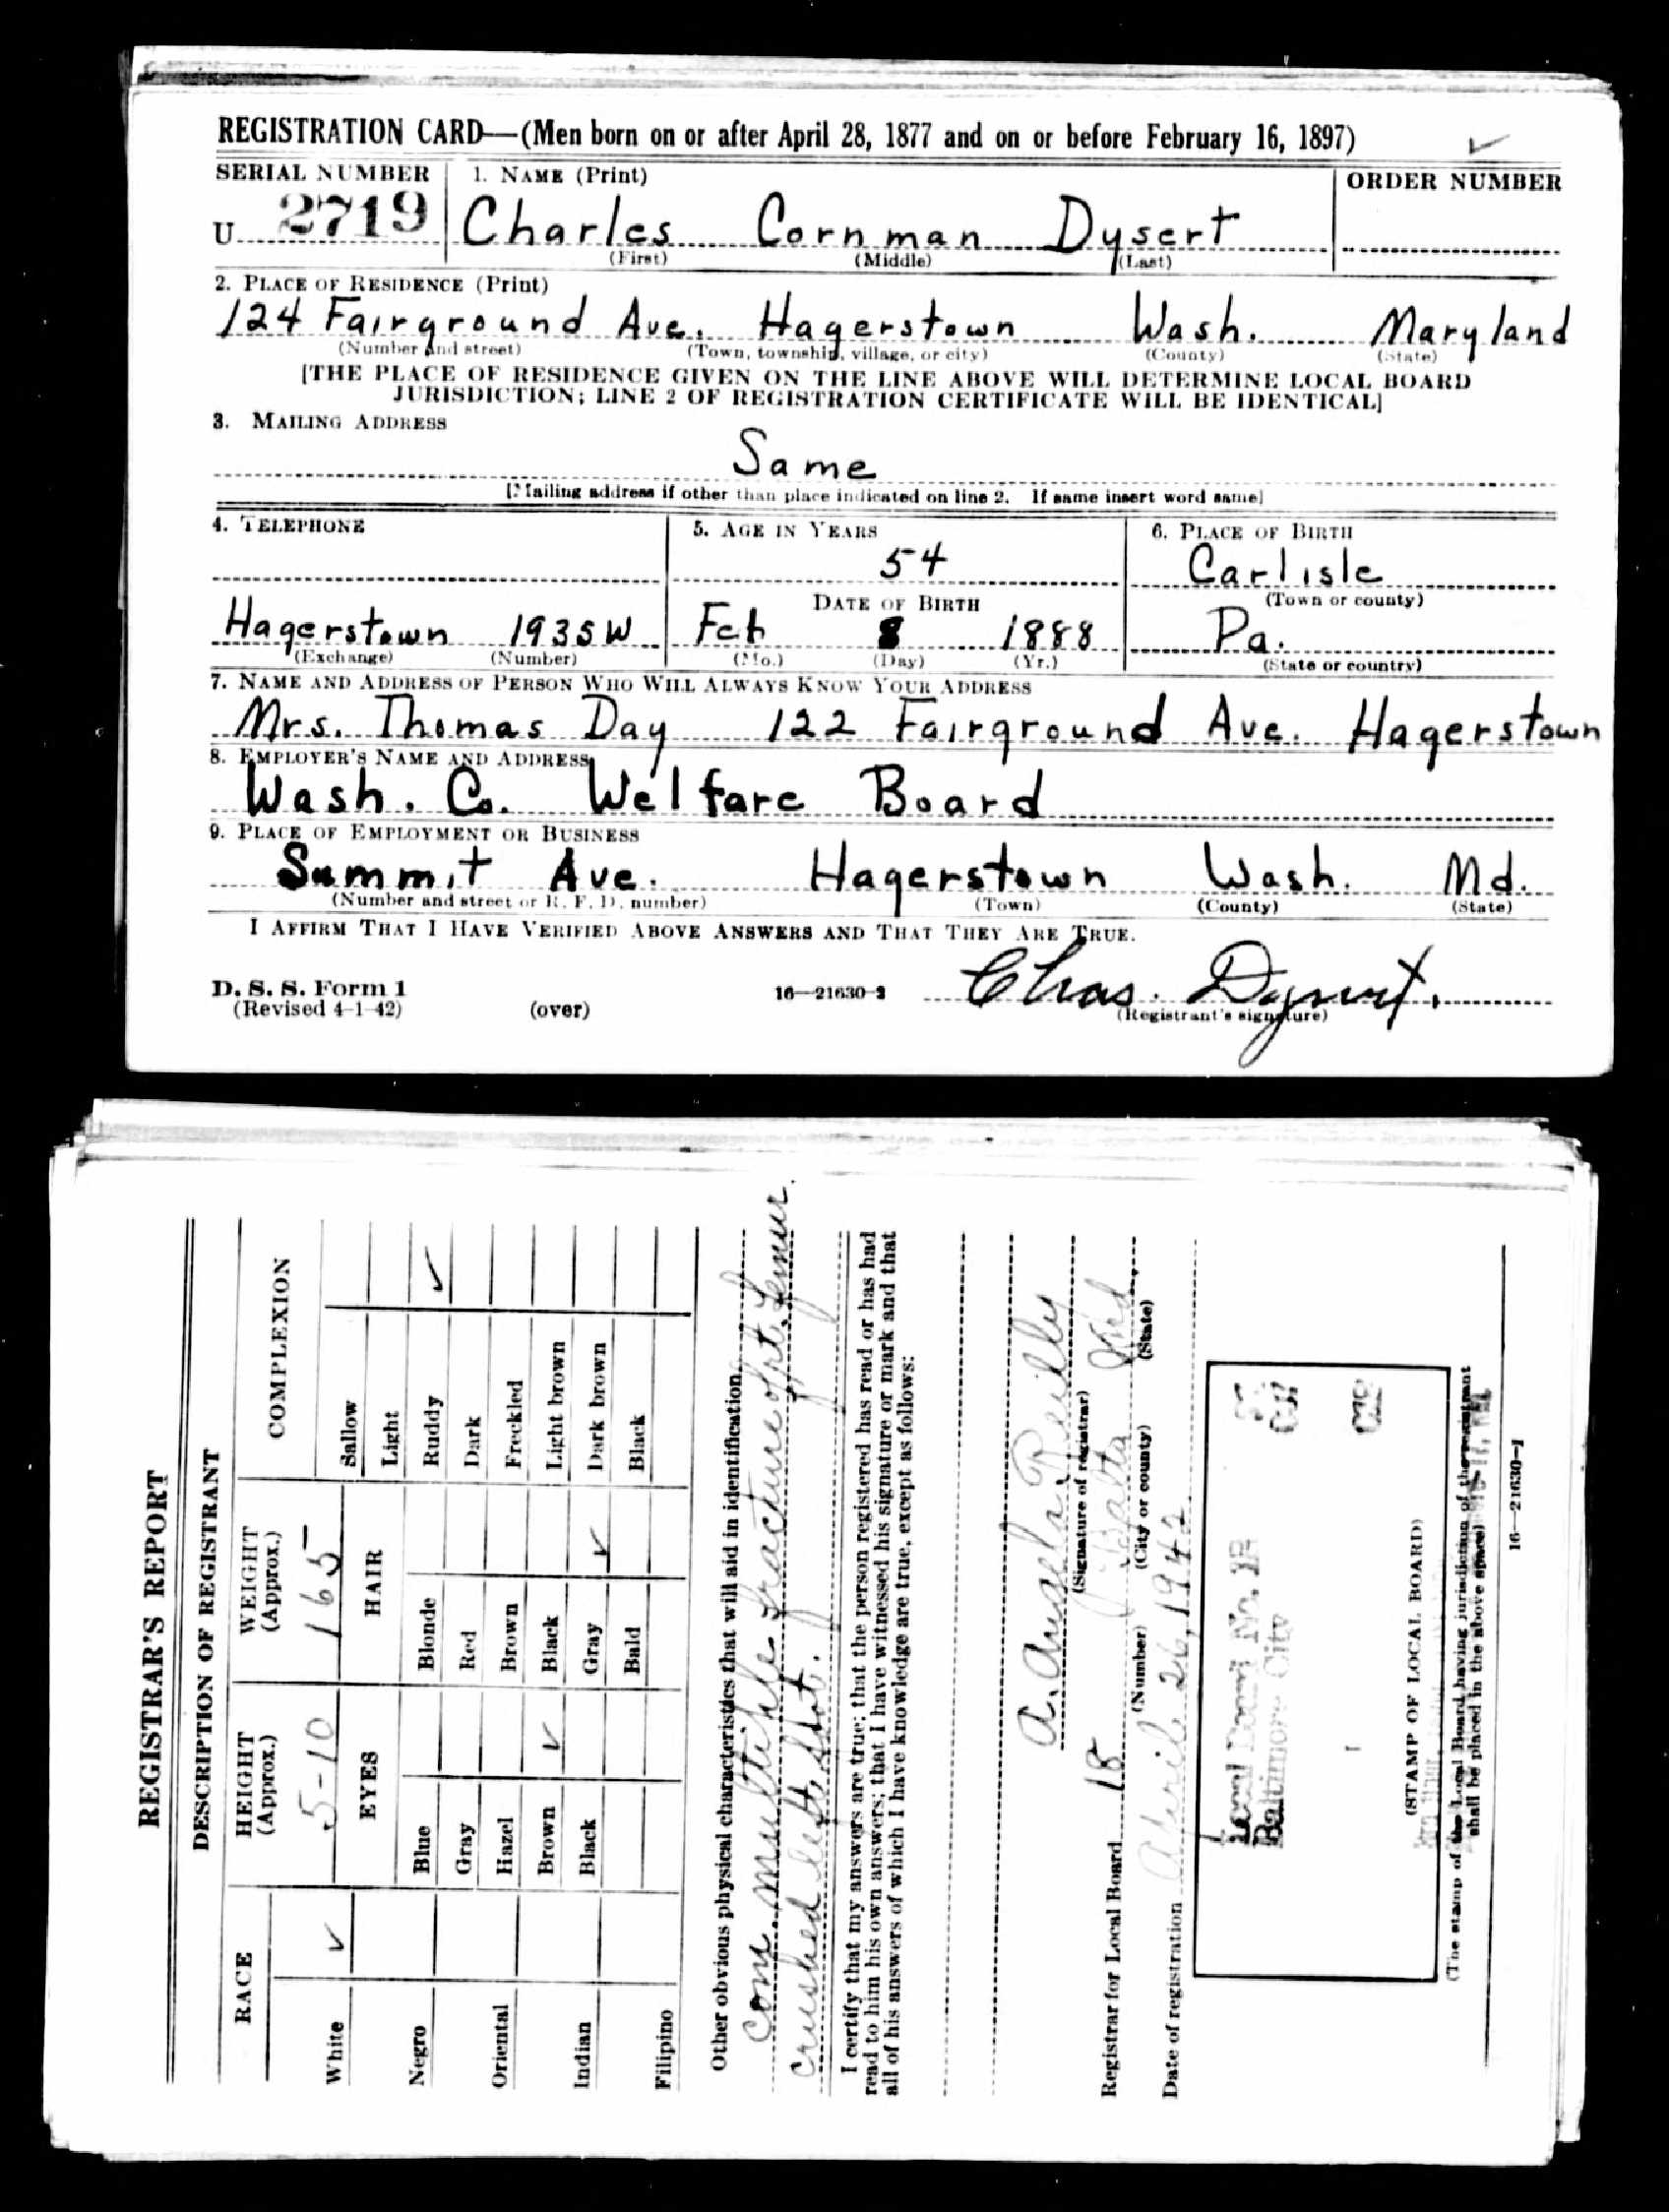 REGISTRATION CARD—(Men born on or after April 28, 1877 and on or before February 16, 1897)
SERIAL NUMBER 1. NAME (Print) ORDER NUMBER
U 2719 Charles Cornman Dysert
(First) (Middle) (Last)
2. PLACE OF RESIDENCE (Print)
124 Fairground Ave. Hagerstown Wash. Maryland
(Number and street) (Town, township, village, or city) (County) (State)
[THE PLACE OF RESIDENCE GIVEN ON THE LINE ABOVE WILL DETERMINE LOCAL BOARD
JURISDICTION; LINE 2 OF REGISTRATION CERTIFICATE WILL BE IDENTICAL]
3. MAILING ADDRESS
Same
[Mailing address if other than place indicated on line 2. If same insert word same]
4. TELEPHONE 5. AGE IN YEARS 6. PLACE OF BIRTH
54 Carlisle
DATE OF BIRTH (Town or county)
Hagerstown 1935W Feb 8 1888 Pa.
(Exchange) (Number) (Mo.) (Day) (Yr.) (State or country)
7. NAME AND ADDRESS OF PERSON WHO WILL ALWAYS KNOW YOUR ADDRESS
Mrs. Thomas Day 122 Fairground Ave. Hagerstown
8. EMPLOYER'S NAME AND ADDRESS
Wash. Co. Welfare Board
9. PLACE OF EMPLOYMENT OR BUSINESS
Summit Ave. Hagerstown Wash. Md.
(Number and street or R. F. D. number) (Town) (County) (State)
I AFFIRM THAT I HAVE VERIFIED ABOVE ANSWERS AND THAT THEY ARE TRUE.
D. S. S. Form 1
(Revised 4-1-42) (over) 16—21630-2 Chas. Dysert.
(Registrant's signature)
REGISTRAR'S REPORT
DESCRIPTION OF REGISTRANT
RACE HEIGHT (Approx.) WEIGHT (Approx.) COMPLEXION
White ✓ 5-10 165 Sallow
EYES HAIR Light
Negro Blue Blonde Ruddy ✓
Gray Red Dark
Oriental Hazel Brown Freckled
Brown ✓ Black Light brown
Indian Black Gray ✓ Dark brown
Bald Black
Filipino
Other obvious physical characteristics that will aid in identification
com. multiple fracture of rt. femur.
crushed left foot.
I certify that my answers are true; that the person registered has read or has had
read to him his own answers; that I have witnessed his signature or mark and that
all of his answers of which I have knowledge are true, except as follows:
A. Angela Reilly
(Signature of registrar)
Registrar for Local Board 18 Balto Md
(Number) (City or county) (State)
Date of registration April 26, 1942
Local Board No. 18
Baltimore City
(STAMP OF LOCAL BOARD)
(The stamp of the Local Board having jurisdiction of the registrant
shall be placed in the above space)
16—21630-1